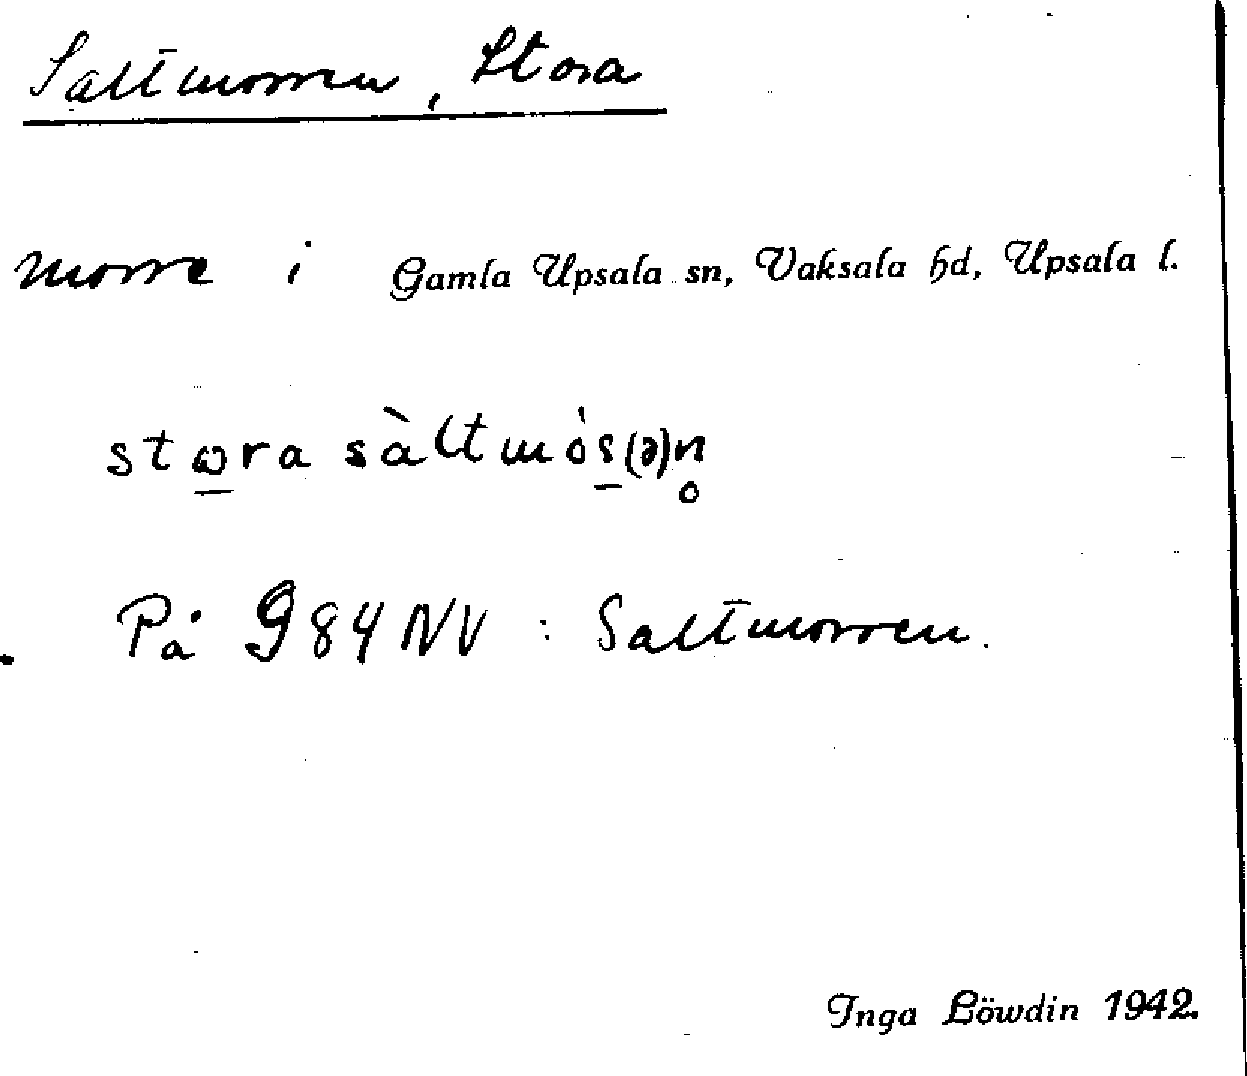 Saltmossen, Stora
mosse i Gamla Upsala sn, Vaksala hd, Upsala l.
stω̱ra sàltmós̱(ə)n̥
På 984 NV : Saltmossen.
Inga Löwdin 1942.